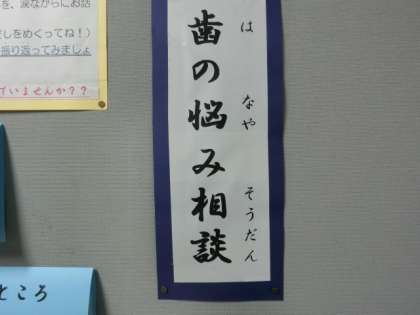 を、涙ながらにお話
だしをめくってね！）
振り返ってみましょ
ていませんか？？
歯の悩み相談
は なや そうだん
ところ